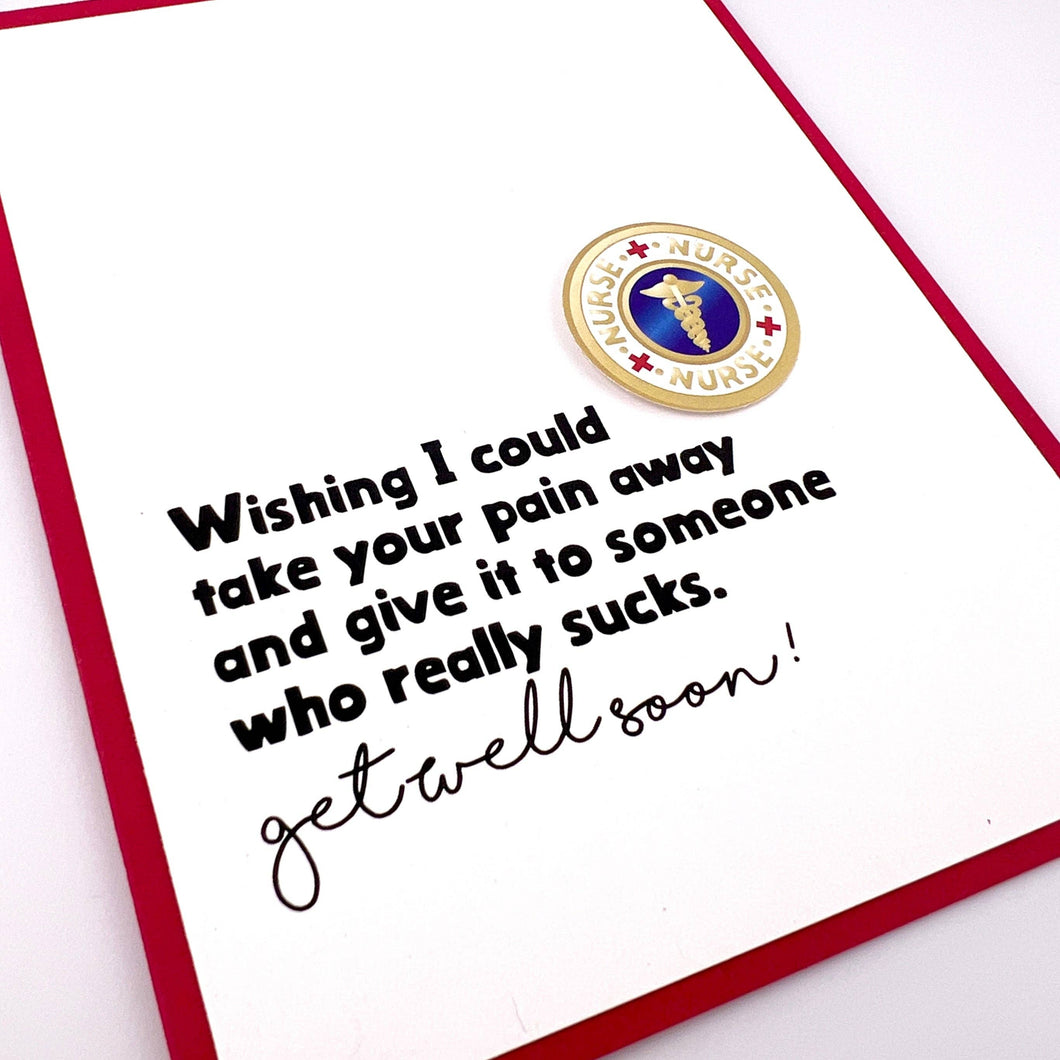 NURSE NURSE NURSE
Wishing I could
take your pain away
and give it to someone
who really sucks.
get well soon!